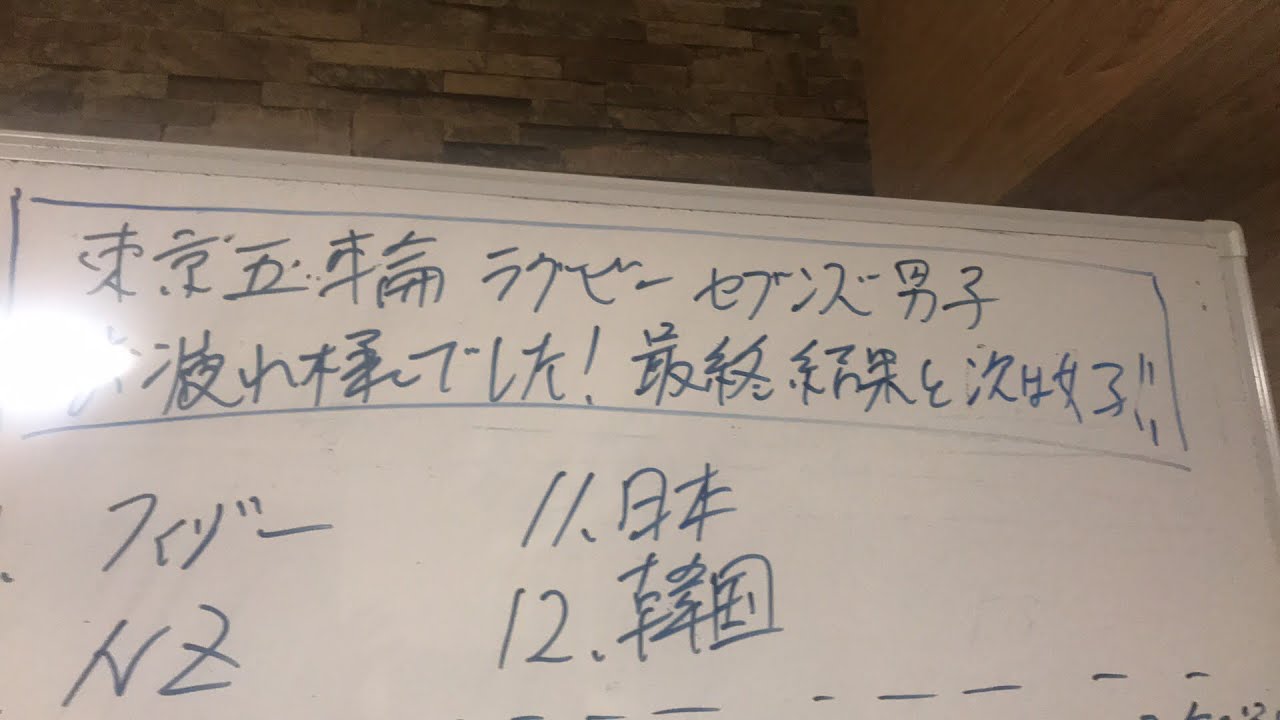 東京五輪 ラグビー セブンズ 男子
お疲れ様でした! 最終結果と次は女子!!
フィジー
11. 日本
NZ
12. 韓国